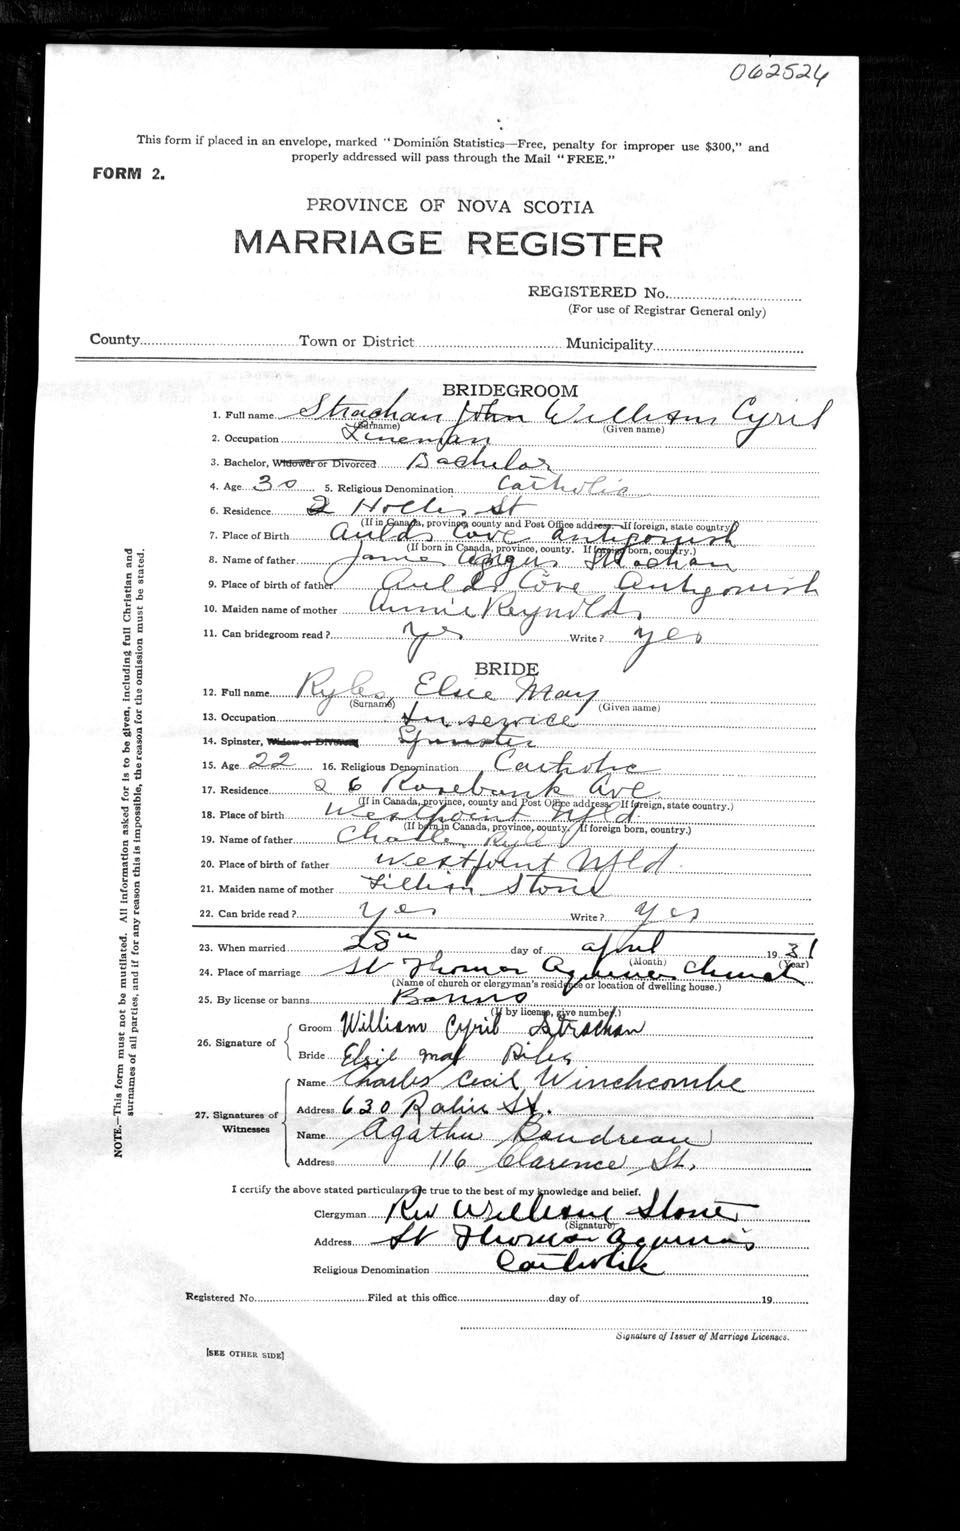 062524
This form if placed in an envelope, marked "Dominion Statistics—Free, penalty for improper use $300," and
properly addressed will pass through the Mail "FREE."
FORM 2.
PROVINCE OF NOVA SCOTIA
MARRIAGE REGISTER
REGISTERED No.
(For use of Registrar General only)
County Town or District Municipality
BRIDEGROOM
1. Full name Strachan John William Cyril
(Surname) (Given name)
2. Occupation Lineman
3. Bachelor, Widower or Divorced Bachelor
4. Age 30 5. Religious Denomination Catholic
6. Residence 2 Hollis St
(If in Canada, province, county and Post Office address. If foreign, state country)
7. Place of Birth Aulds Cove Antigonish
(If born in Canada, province, county. If foreign born, country.)
8. Name of father James Angus Strachan
9. Place of birth of father Aulds Cove Antigonish
10. Maiden name of mother Annie Reynolds
11. Can bridegroom read? yes Write? yes
BRIDE
12. Full name Ryles Elsie May
(Surname) (Given name)
13. Occupation In service
14. Spinster, Widow or Divorced Spinster
15. Age 22 16. Religious Denomination Catholic
17. Residence 26 Rosebank Ave
(If in Canada, province, county and Post Office address. If foreign, state country.)
18. Place of birth Westpoint Nfld
(If born in Canada, province, county. If foreign born, country.)
19. Name of father Charles Ryles
20. Place of birth of father Westpoint Nfld
21. Maiden name of mother Lillian Stone
22. Can bride read? yes Write? yes
23. When married 28th day of April 1931
(Month) (Year)
24. Place of marriage St Thomas Aquinas Church
(Name of church or clergyman's residence or location of dwelling house.)
25. By license or banns Banns
(If by license, give number.)
26. Signature of Groom William Cyril Strachan
Bride Elsie May Riles
27. Signatures of Witnesses Name Charles Cecil Winchcombe
Address 630 Robie St.
Name Agatha Boudreau
Address 116 Clarence St.
I certify the above stated particulars are true to the best of my knowledge and belief.
Clergyman Rev William Stone
(Signature)
Address St Thomas Aquinas
Religious Denomination Catholic
Registered No. Filed at this office day of 19
Signature of Issuer of Marriage Licenses.
[SEE OTHER SIDE]
NOTE.—This form must not be mutilated. All information asked for is to be given, including full Christian and
surnames of all parties, and if for any reason this is impossible, the reason for the omission must be stated.